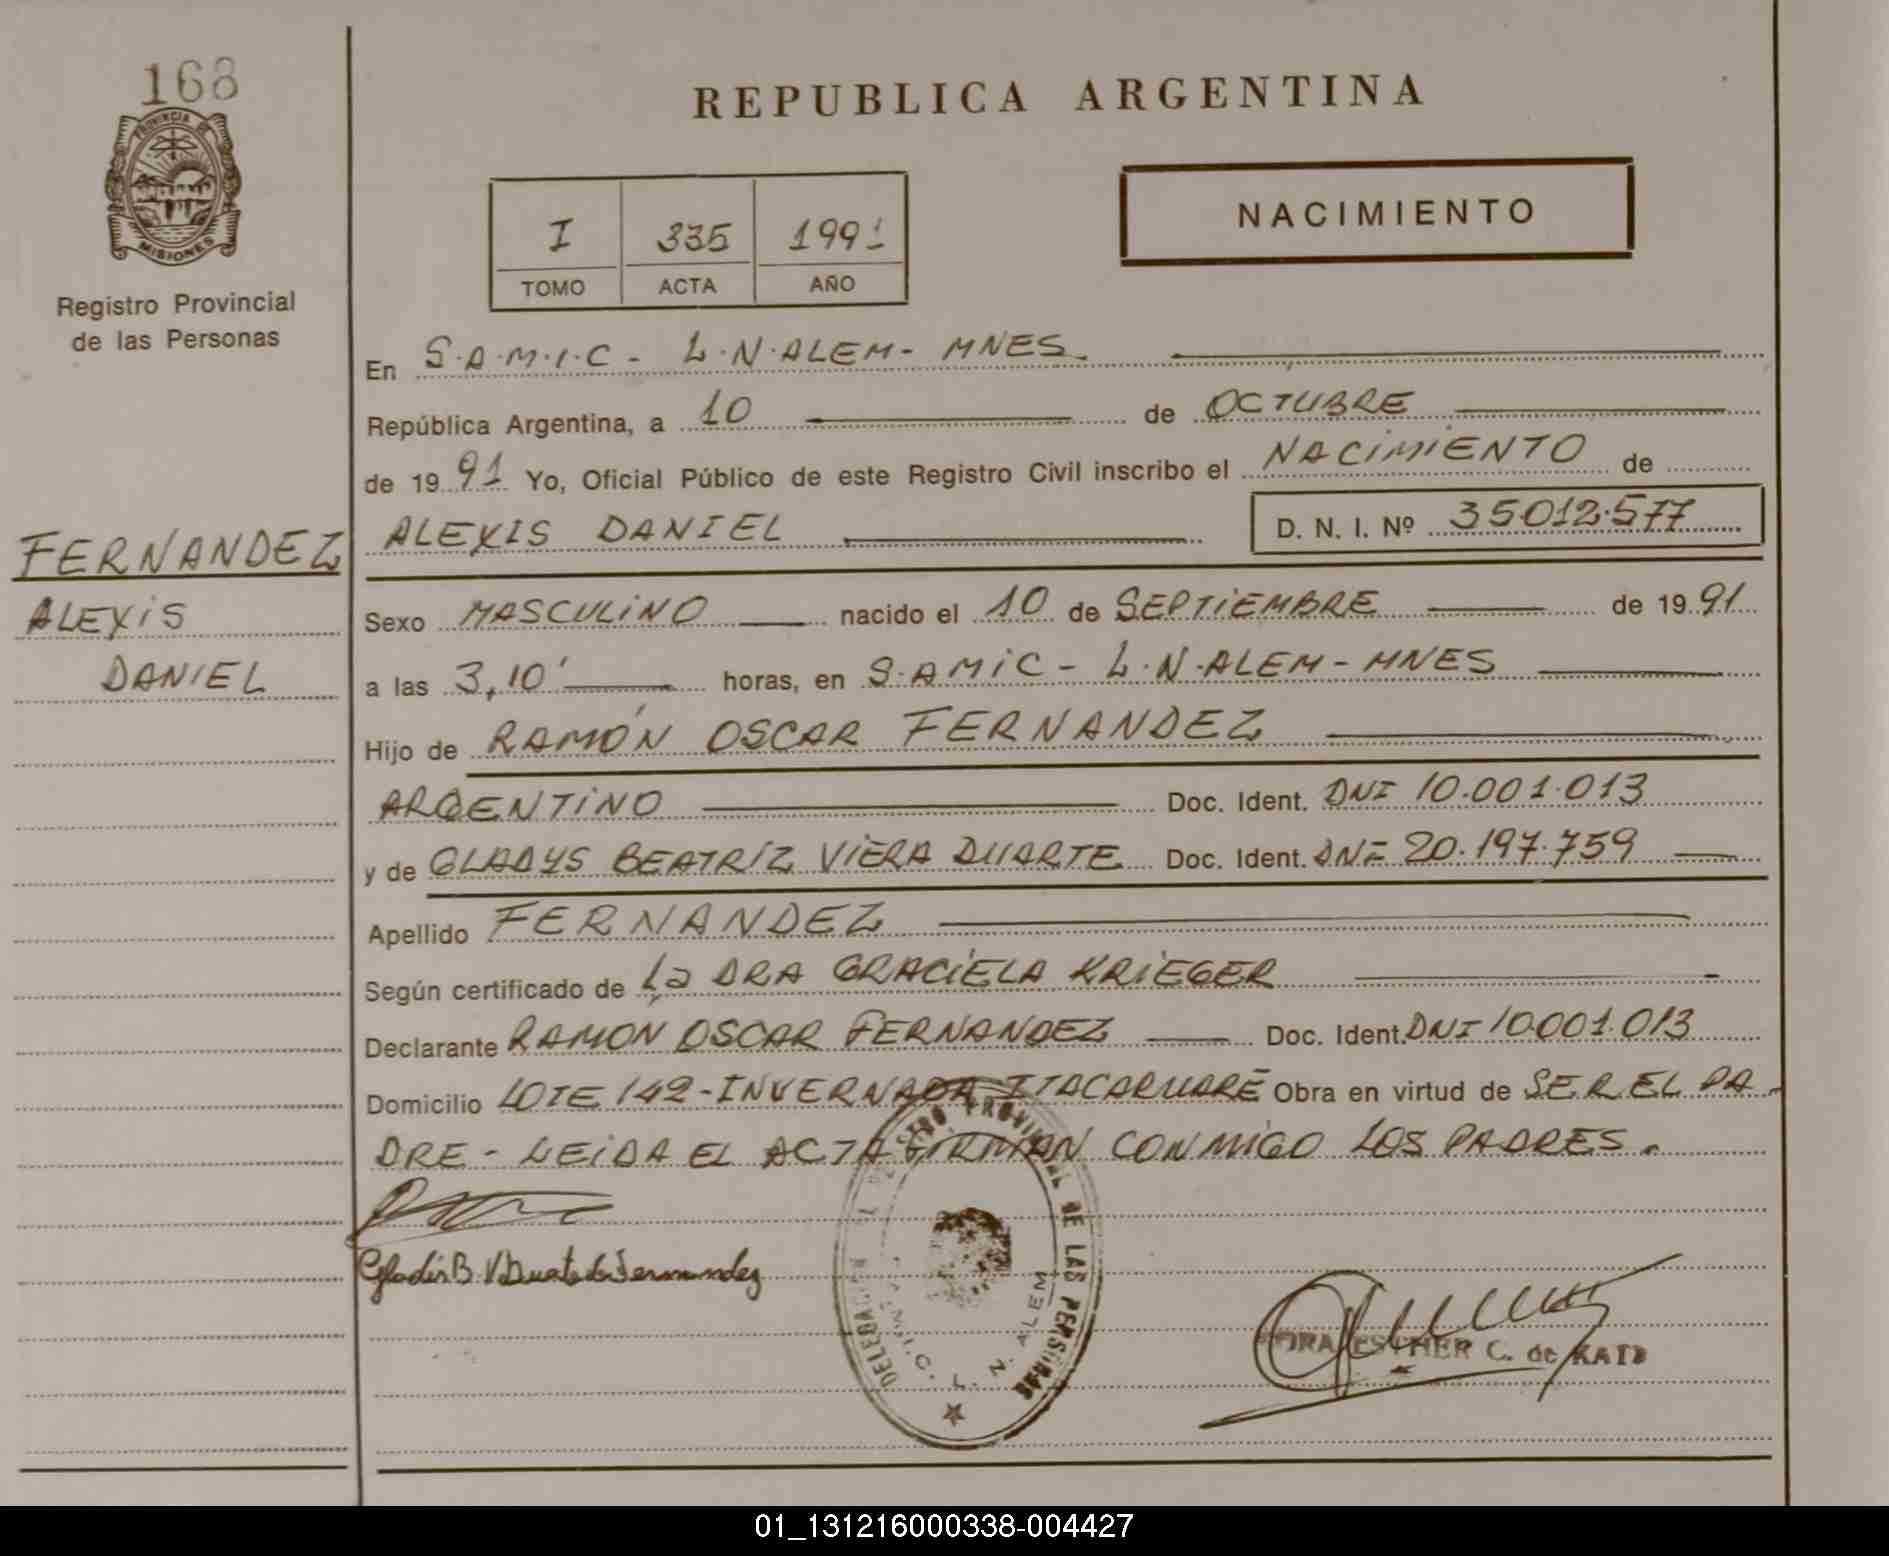 168
PROVINCIA DE
MISIONES
Registro Provincial
de las Personas
REPUBLICA ARGENTINA
I 335 1991
TOMO ACTA AÑO
NACIMIENTO
En S.A.M.I.C - L.N.ALEM - MNES.
República Argentina, a 10 de OCTUBRE
de 1991 Yo, Oficial Público de este Registro Civil inscribo el NACIMIENTO de
ALEXIS DANIEL D. N. I. Nº 35012.577
FERNANDEZ
ALEXIS
DANIEL
Sexo MASCULINO nacido el 10 de SEPTIEMBRE de 1991
a las 3,10' horas, en S.AMIC - L.N.ALEM - MNES
Hijo de RAMÓN OSCAR FERNANDEZ
ARGENTINO Doc. Ident. DNI 10.001.013
y de GLADYS BEATRIZ VIERA DUARTE Doc. Ident. DNI 20.197.759
Apellido FERNANDEZ
Según certificado de La DRA GRACIELA KRIEGER
Declarante RAMON OSCAR FERNANDEZ Doc. Ident. DNI 10.001.013
Domicilio LOTE 142 - INVERNADA ITACARUARE Obra en virtud de SER EL PA
DRE - LEIDA EL ACTA FIRMAN CONMIGO LOS PADRES.
Gladis B. V. Duarte de Fernandez
PROVINCIAL DE LAS PERSONAS
L. N. ALEM
ESTHER C. de
01_131216000338-004427